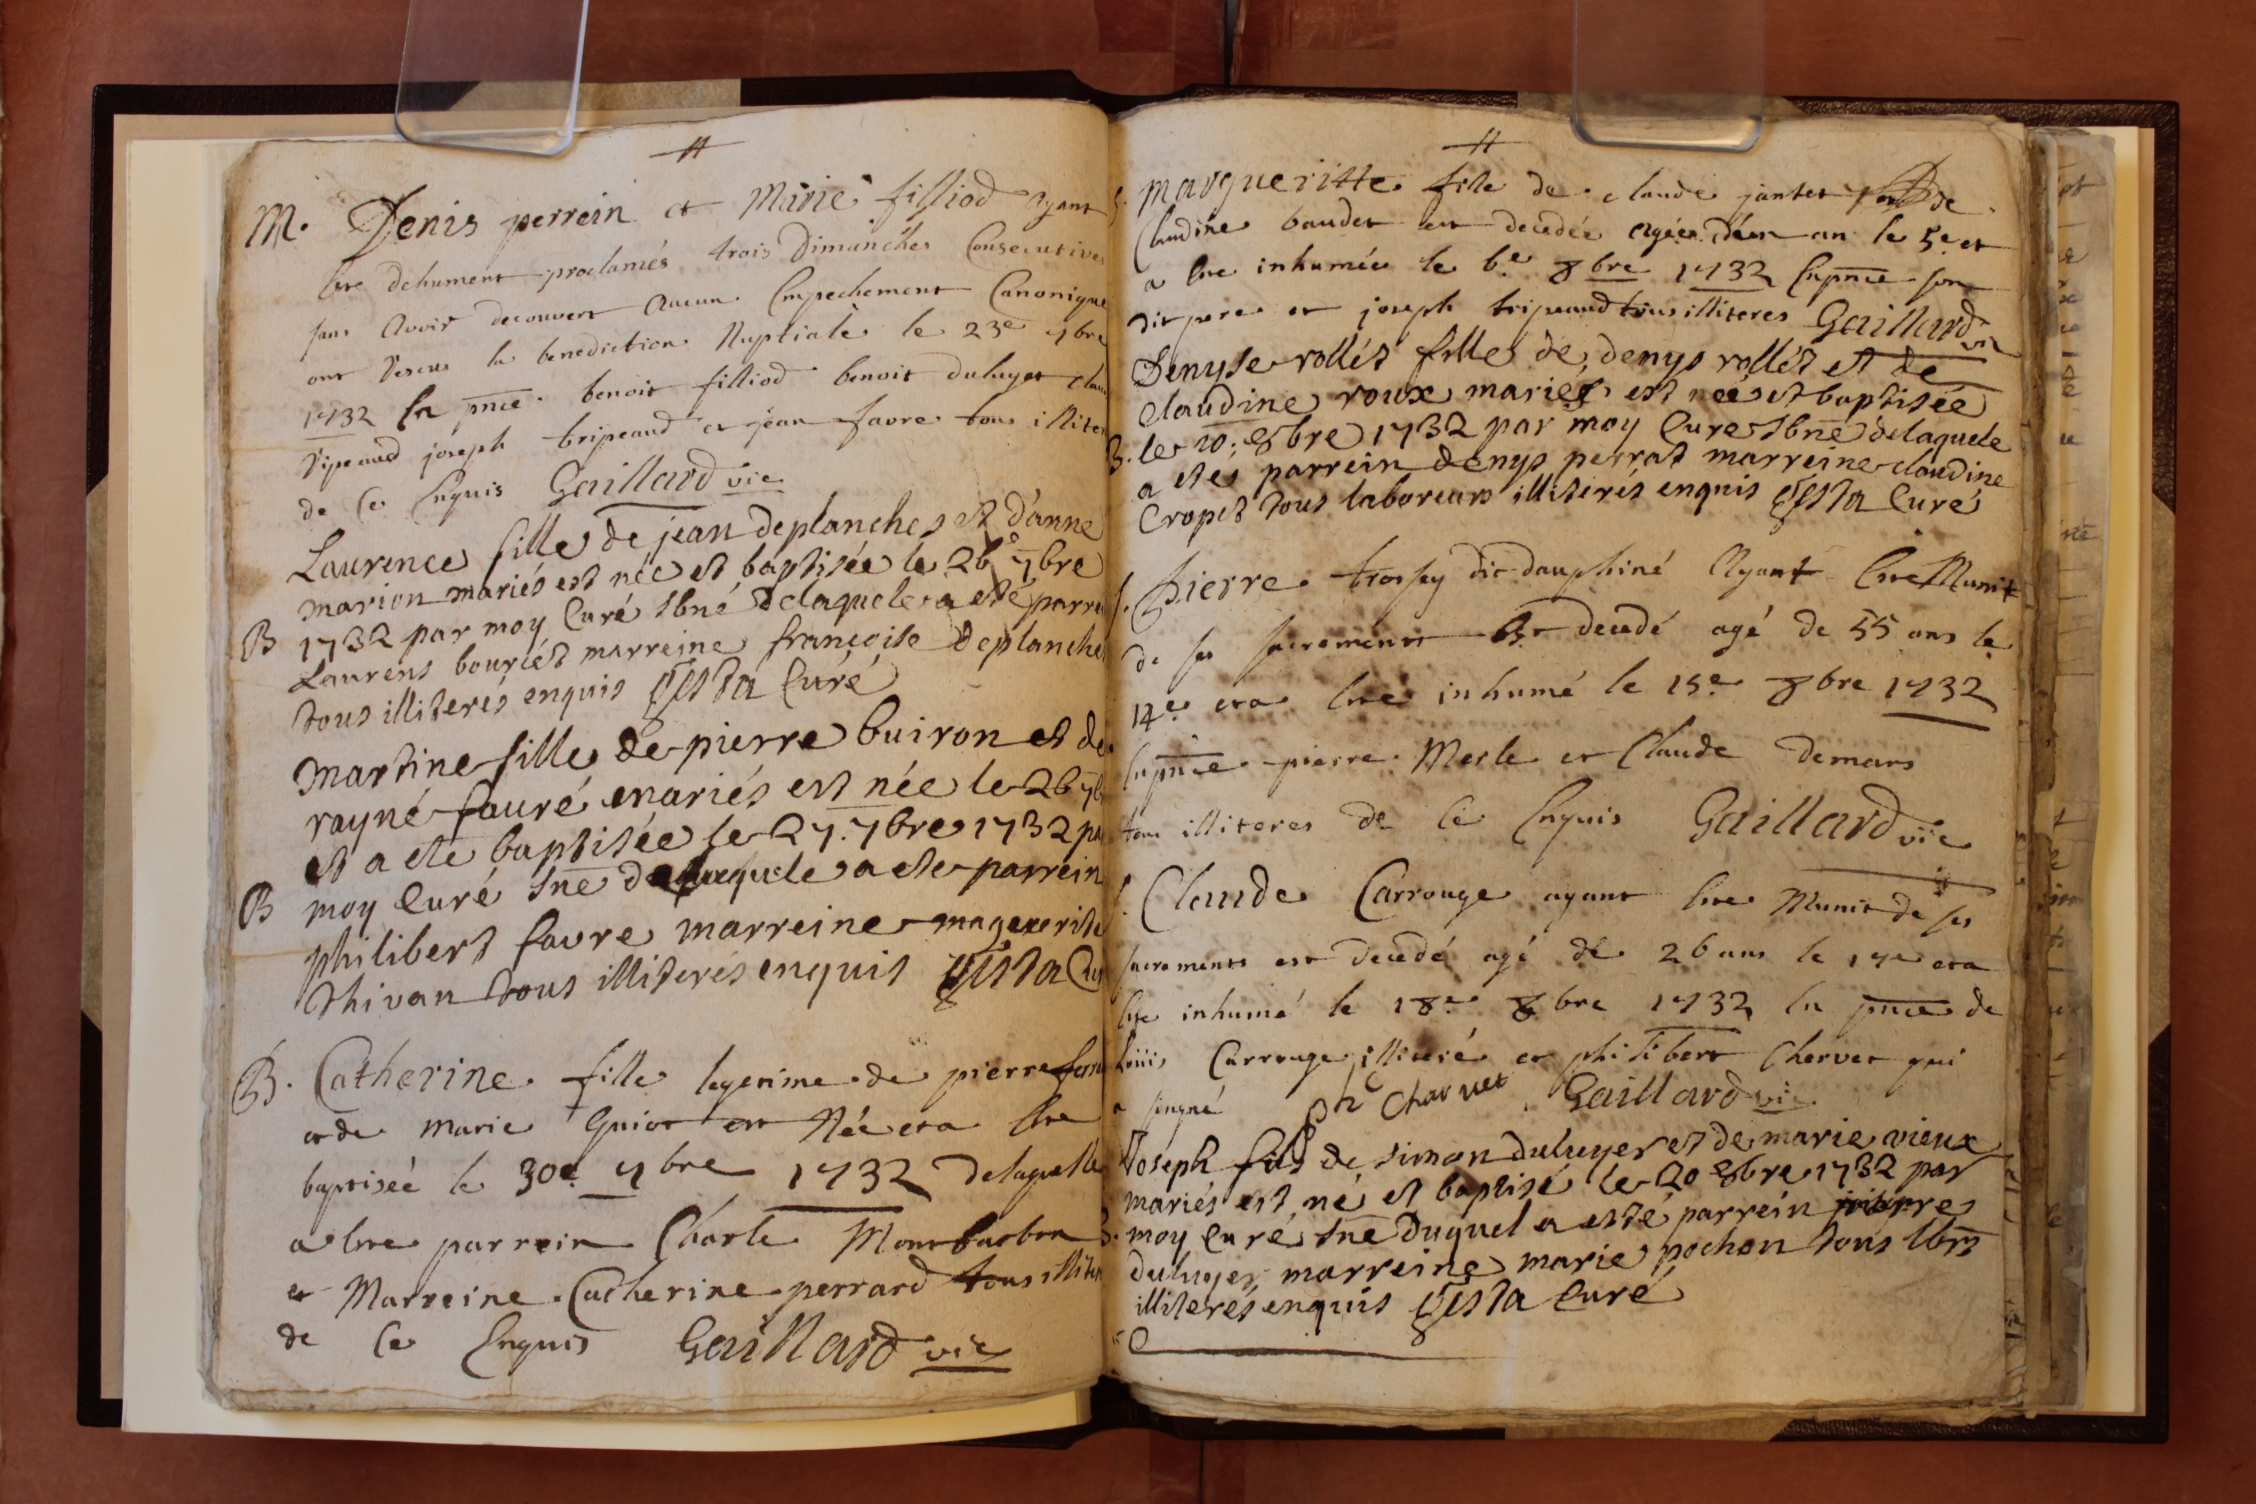 M. Denis perrein et Marie filliod ayant
été dehument proclamés trois Dimanches Consecutives
sans avoir decouvert aucun Empechement Canonique
ont receu la benediction Nuptiale le 23e 7bre
1732 En pnce benoit filliod benoit duluyet
ripeaud joseph tripeaud et jean favre tous illiter
de ce Enquis Gaillard vic
Laurence fille de jean deplanches et d'anne
marion mariés est née et baptisée le 26e 7bre
B 1732 par moy Curé sbné delaquele a eté parre
Laurens bourcét marreine francoise deplanche
tous illiterés enquis Gista Curé
Martine fille de pierre buiron et de
rayné fauré mariés est née le 26 7b
et a eté baptisée le 27. 7bre 1732 pa
B moy Curé sné delaquele a eté parrein
philibert favre marreine
thivan tous illiterés enquis Gista Cu
B. Catherine fille legetime de pierre
et de marie Guiot est Née et a Eté
baptisée le 30e 7bre 1732 delaquelle
a Eté parrein Charle Montbarbon
et Marreine Catherine perrard tous illiter
de Ce Enquis Gaillard vic
Margueritte fille de claude jantet de
Claudine baudet est decedée agée d'un an le 5e et
a Eté inhumée le 6e 8bre 1732 En pnce son
dit pere et joseph tripeaud tous illiteres Gaillard vic
Denyse rollét fille de denys rollét et de
claudine roux mariés est née et baptisée
B. le 10. 8bre 1732 par moy Curé sbné delaquele
a eté parrein denys perrat marreine claudine
Cropet tous laboreurs illiterés enquis Gista Curé
Pierre trossey dit dauphiné Ayant Eté Munit
de ses sacrements Est decedé agé de 55 ans le
14e et a Eté inhumé le 15e 8bre 1732
En pnce pierre Merle et Claude demars
tous illiteres de Ce Enquis Gaillard vic
Claude Carrouge ayant Eté Munit de ses
sacrements est decedé agé de 26 ans le 17e et a
Eté inhumé le 18e 8bre 1732 En pnce de
Loüis Carrouge illiteré et philibert Chervet qui
a singné Ph Charvet Gaillard vic
Joseph fils de simon duluyer et de marie vieux
mariés est né et baptisé le 20 8bre 1732 par
B. moy curé sné duquel a esté parrein
duluyer marreine marie pochon tous
illiterés enquis Gista Curé